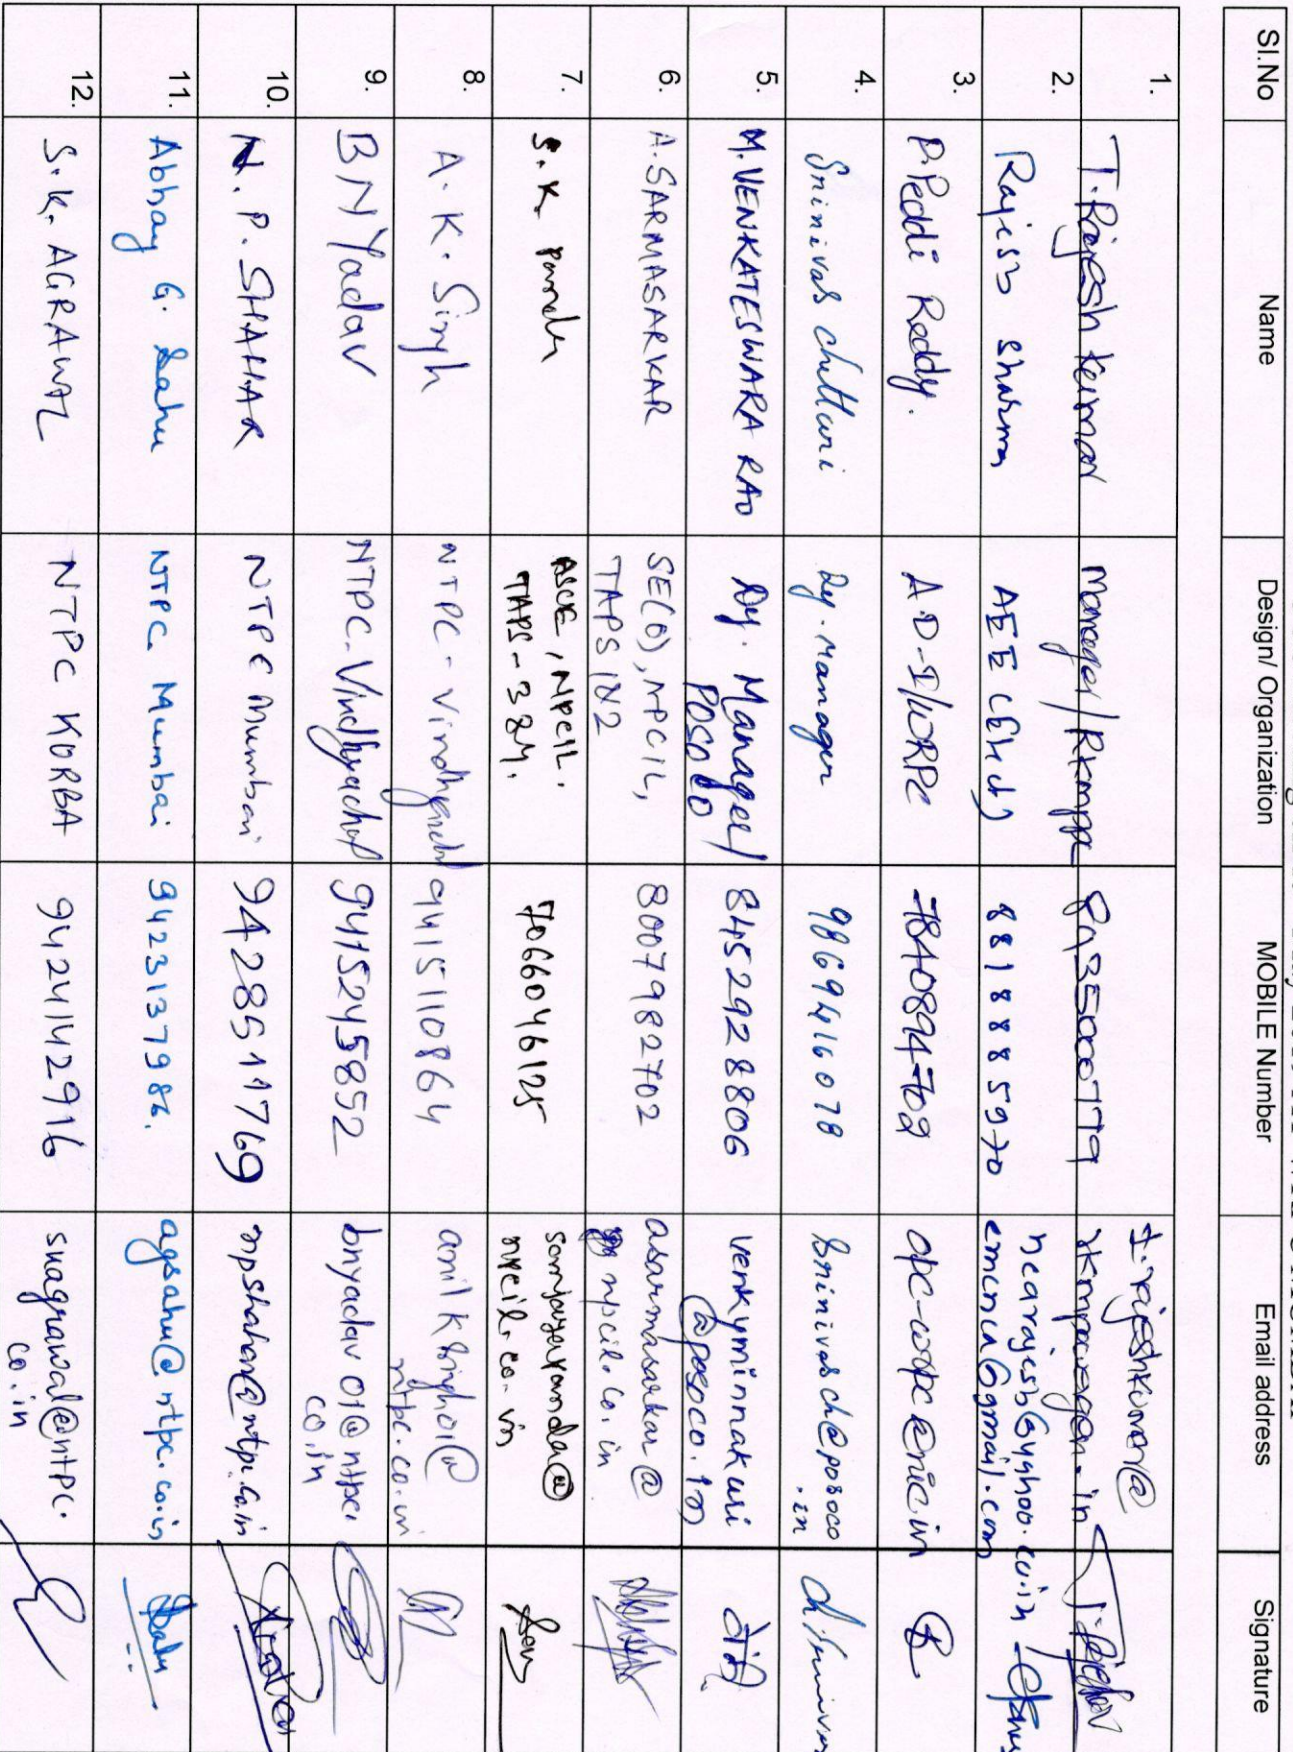 Sl.No Name Design/ Organization MOBILE Number Email address Signature
1. T. Rajesh Kumar Manager/Rkmppl 8693500779 t.rajeshkumar@
2. Rajesh Sharma AEE 8818885970 nearajesh@yahoo.co.in
@gmail.com
3. P. Peddi Reddy. A.D-I/WRPC 7840894709 opc-wrpc@nic.in
4. Srinivas chitturi Dy. Manager 9869416078 srinivasch@posoco
.in
5. M. VENKATESWARA RAO Dy. Manager/ 8452928806 venkyminnakuri
POSOCO @posoco.in
6. A. SARMASARKAR SE(O), NPCIL, 8007982702 asarmasarkar@
TAPS 1&2 npcil.co.in
7. S. K. NPCIL. 7066046125
TAPS-3&4. npcil.co.in
8. A. K. Singh NTPC-Vindhyachal 9415110864 anilksingh01@
ntpc.co.in
9. B N Yadav NTPC-Vindhyachal 9415245852 bnyadav01@ntpc.
co.in
10. N. P. SHAHAR NTPC Mumbai 9428511769 npshahar@ntpc.co.in
11. Abhay G. Sahu NTPC Mumbai 9423137986. agsahu@ntpc.co.in Sahu
12. S. K. AGRAWAL NTPC KORBA 9424142916 skagrawal@ntpc.
co.in